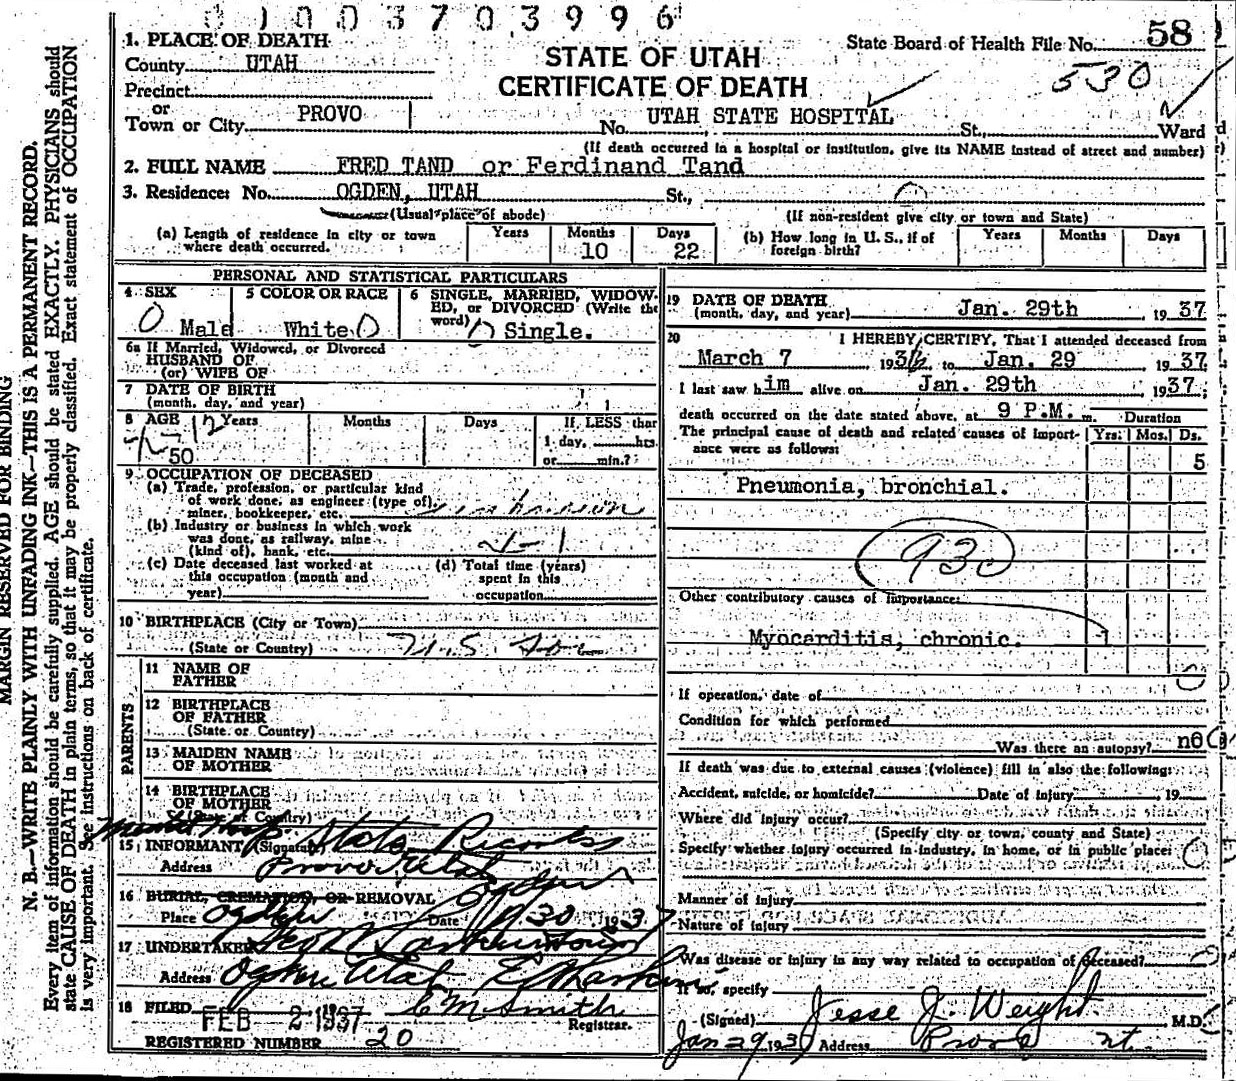 0100370 3996
1. PLACE OF DEATH
STATE OF UTAH
CERTIFICATE OF DEATH
State Board of Health File No. 58
530
County UTAH
Precinct
or
Town or City PROVO
No. UTAH STATE HOSPITAL St., Ward
(If death occurred in a hospital or institution, give its NAME instead of street and number)
2. FULL NAME FRED TAND or Ferdinand Tand
3. Residence: No. OGDEN, UTAH St.,
(Usual place of abode)
(If non-resident give city or town and State)
(a) Length of residence in city or town where death occurred.
Years Months 10 Days 22
(b) How long in U. S., if of foreign birth?
Years Months Days
PERSONAL AND STATISTICAL PARTICULARS
4 SEX Male
5 COLOR OR RACE White
6 SINGLE, MARRIED, WIDOWED, or DIVORCED (Write the word) Single.
6a If Married, Widowed, or Divorced
HUSBAND OF
(or) WIFE OF
7 DATE OF BIRTH
(month, day, and year)
8 AGE Years Months Days If LESS than
50
1 day, hrs.
or min.?
9 OCCUPATION OF DECEASED
(a) Trade, profession, or particular kind
of work done, as engineer (type of),
miner, bookkeeper, etc.
(b) Industry or business in which work
was done, as railway, mine
(kind of), bank, etc.
(c) Date deceased last worked at
this occupation (month and
year)
(d) Total time (years)
spent in this
occupation
10 BIRTHPLACE (City or Town)
(State or Country)
PARENTS
11 NAME OF
FATHER
12 BIRTHPLACE
OF FATHER
(State or Country)
13 MAIDEN NAME
OF MOTHER
14 BIRTHPLACE
OF MOTHER
(State or Country)
15 INFORMANT (Signature) State Records
Address Provo Utah
16 BURIAL, CREMATION, OR REMOVAL Ogden
Place Ogden Date 1/30 1937
17 UNDERTAKER
Address Ogden Utah
18 FILED FEB 2 1937 E M Smith
Registrar.
REGISTERED NUMBER 20
19 DATE OF DEATH
(month, day, and year) Jan. 29th, 1937
20 I HEREBY CERTIFY, That I attended deceased from
March 7 1936 to Jan. 29 1937
I last saw him alive on Jan. 29th 1937;
death occurred on the date stated above, at 9 P.M. m. Duration
The principal cause of death and related causes of importance were as follows:
Yrs. Mos. Ds.
5
Pneumonia, bronchial.
93c
Other contributory causes of importance:
Myocarditis, chronic. 1
If operation, date of
Condition for which performed
Was there an autopsy? no
If death was due to external causes (violence) fill in also the following:
Accident, suicide, or homicide? Date of injury 19
Where did injury occur?
(Specify city or town, county and State)
Specify whether injury occurred in industry, in home, or in public place:
Manner of injury
Nature of injury
Was disease or injury in any way related to occupation of deceased?
If so, specify
(Signed) Jesse J. Weight M.D.
Jan 29 1937 Address Provo Ut.
MARGIN RESERVED FOR BINDING
N. B.—WRITE PLAINLY WITH UNFADING INK—THIS IS A PERMANENT RECORD.
Every item of information should be carefully supplied. AGE should be stated EXACTLY. PHYSICIANS should
state CAUSE OF DEATH in plain terms, so that it may be properly classified. Exact statement of OCCUPATION
is very important. See instructions on back of certificate.